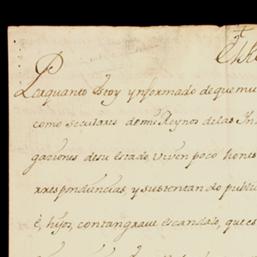 Porquanto Estoy ynformado de que mu
como seculares de mis Reynos de las In
gaciones de su estado, viven poco hones
rrespondencias, y sustentando public
é, hijos, con tan grave escandalo, que es